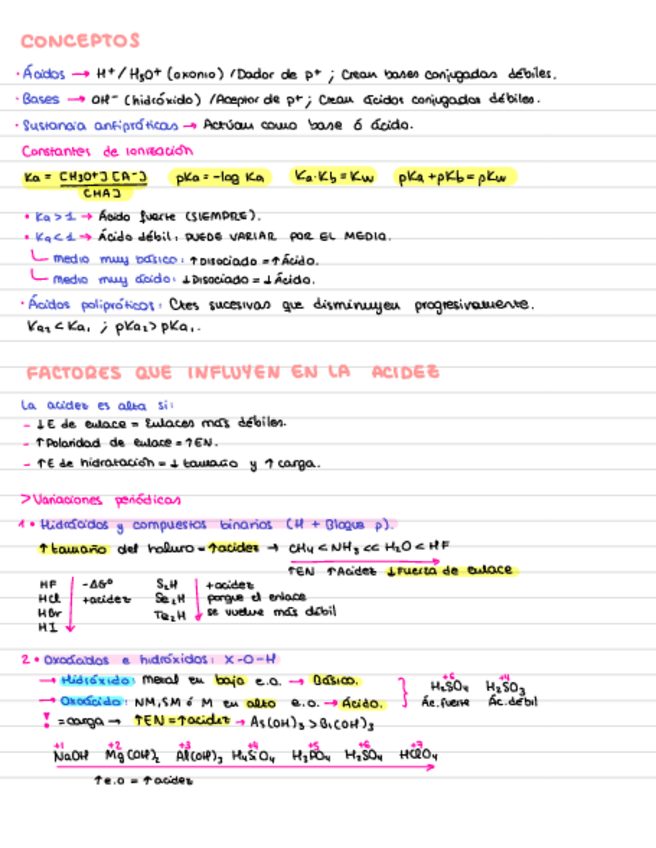 CONCEPTOS
· Ácidos → H+/H3O+ (oxonio) /Dador de p+ ; Crean bases conjugadas débiles.
· Bases → OH- (hidróxido) /Aceptor de p+ ; Crean ácidos conjugados débiles.
· Sustancia anfipróticas → Actúan como base ó ácido.
Constantes de ionización
Ka = [H3O+][A-] / [HA] pKa = -log Ka Ka·Kb = Kw pKa + pKb = pKw
• Ka > 1 → Ácido fuerte (SIEMPRE).
• Ka < 1 → Ácido débil: PUEDE VARIAR POR EL MEDIO.
medio muy básico: ↑Disociado = ↑Ácido.
medio muy ácido: ↓Disociado = ↓Ácido.
· Ácidos polipróticos: Ctes sucesivas que disminuyen progresivamente.
Ka2 < Ka1 ; pKa2 > pKa1.
FACTORES QUE INFLUYEN EN LA ACIDEZ
La acidez es alta si:
- ↓E de enlace = Enlaces más débiles.
- ↑Polaridad de enlace = ↑EN.
- ↑E de hidratación = ↓ tamaño y ↑ carga.
> Variaciones periódicas
1 • Hidrácidos y compuestos binarios (H + Bloque p).
↑tamaño del haluro = ↑acidez → CH4 < NH3 << H2O < HF
↑EN ↑Acidez ↓Fuerza de enlace
HF -ΔGº S2H +acidez
HCl +acidez Se2H porque el enlace
HBr Te2H se vuelve más débil
HI
2 • Oxoácidos e hidróxidos: X-O-H
→ Hidróxido: metal en bajo e.o. → Básico. +6 +4 H2SO4 H2SO3
→ Oxoácido: NM, SM ó M en alto e.o. → Ácido. Ác.fuerte Ác.débil
! = carga → ↑EN = ↑acidez → As(OH)3 > Bi(OH)3
+1 +2 +3 +4 +5 +6 +7
NaOH Mg(OH)2 Al(OH)3 H4SiO4 H3PO4 H2SO4 HClO4
↑e.o = ↑acidez